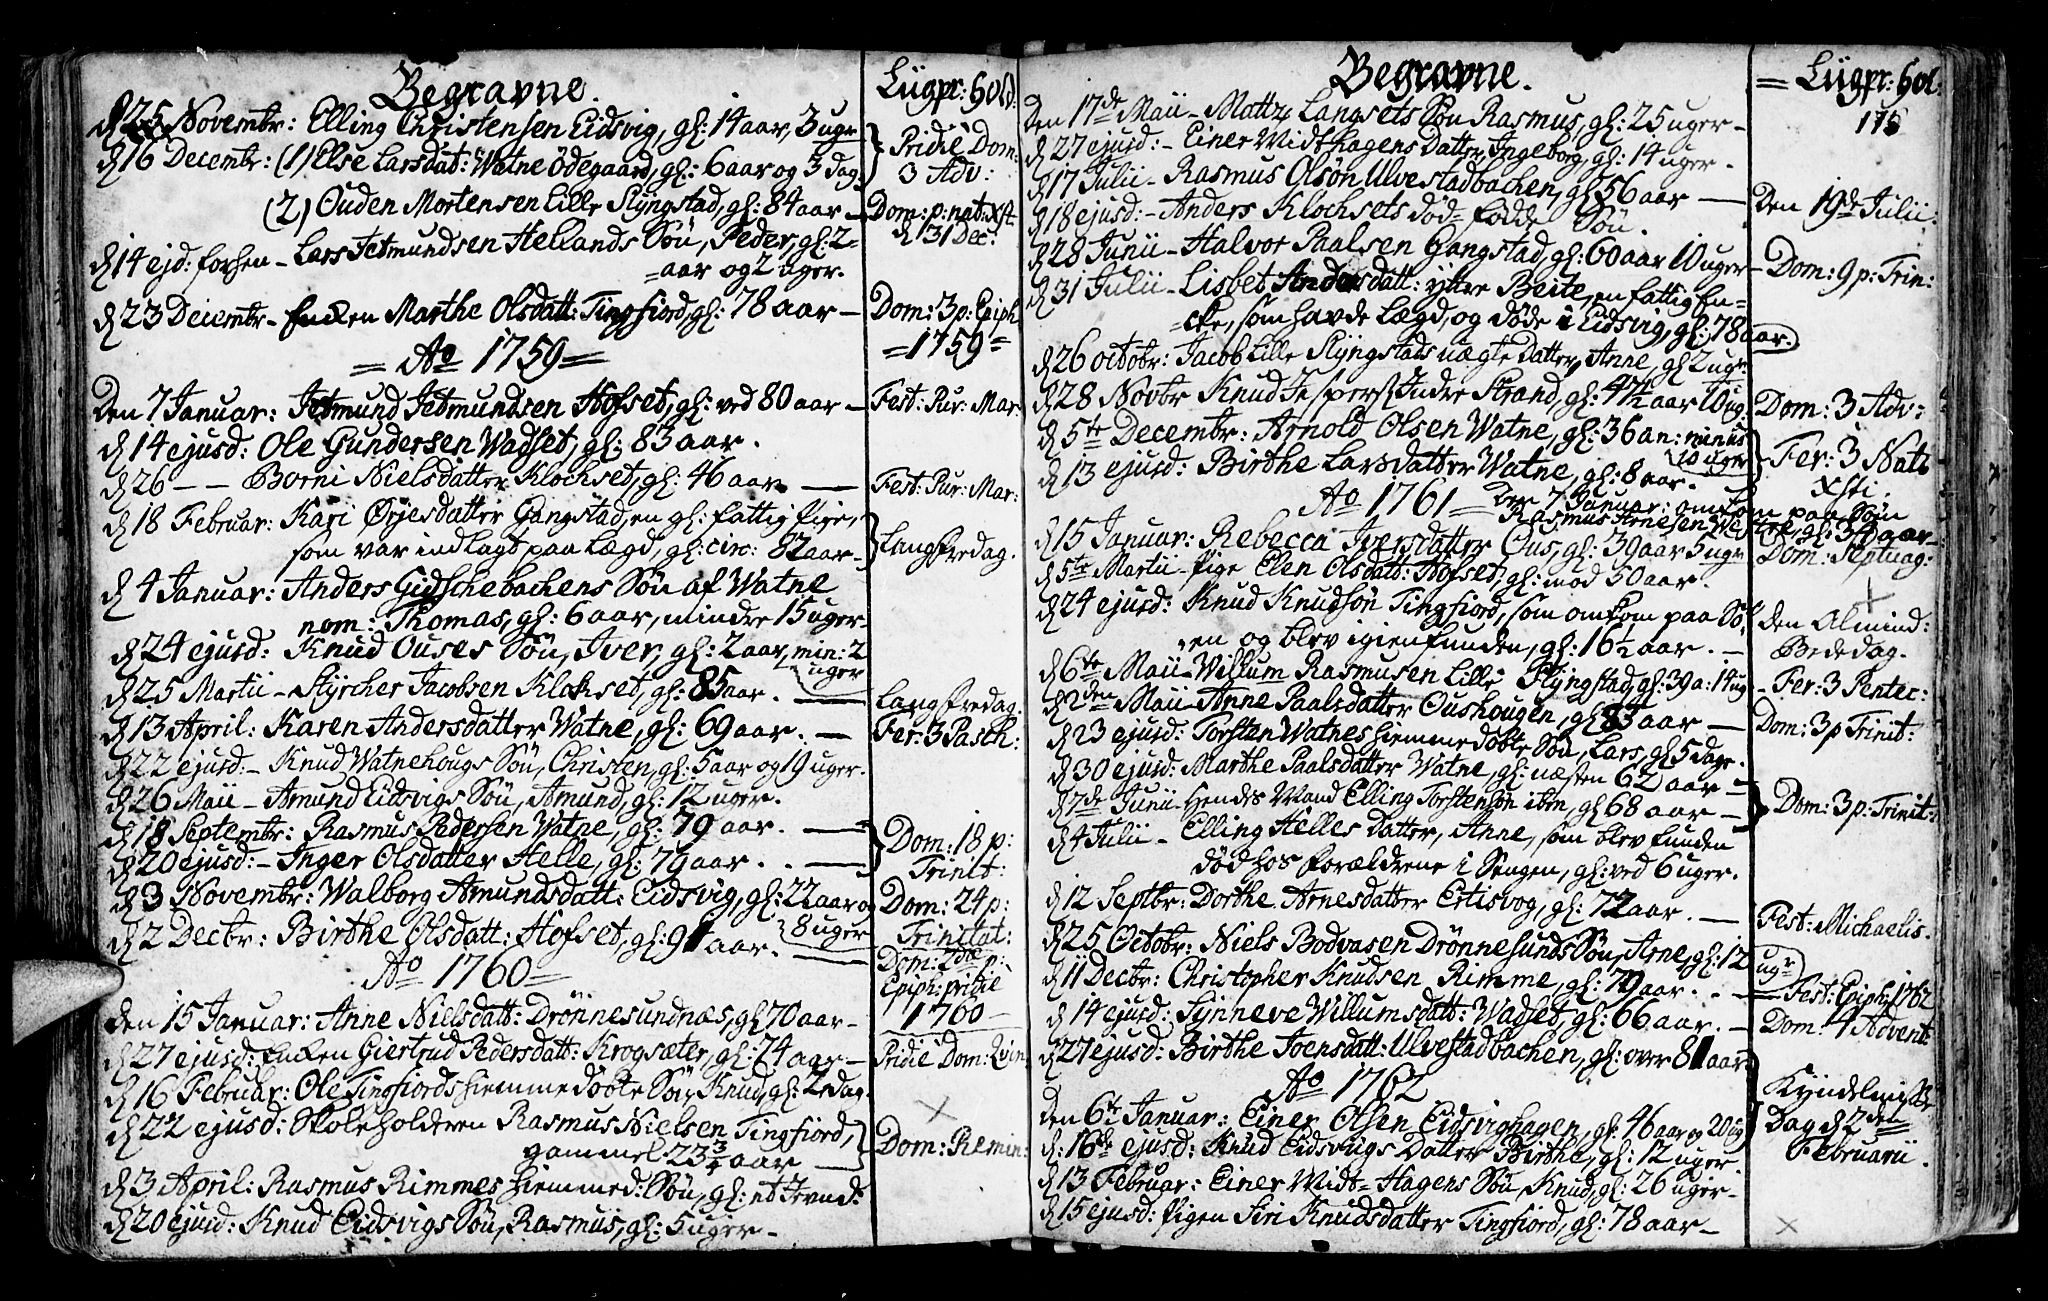 Begravne.
Liigpr: hold:
d 25 Novembr: Elling Christensen Eidsvig, gl: 14 aar, 3 uger
d 16 Decembr: (1) Else Larsdat: Watne Ødegaard, gl: 6 aar og 3 dag.
Pridie Dom:
3 Adv:
(2) Ouden Mortensen Lille Slyngstad, gl: 84 aar —
Dom: p: nat: Xst
d 31 Dec:
d 14 ejd: forhen – Lars Jetmundsen Hellands Søn, Peder, gl: 2=
=aar og 2 uger.
d 23 Decembr – Enken Marthe Olsdatt: Tingfiord, gl: 78 aar —
Dom: 3 p: Epiph
= Ao 1759 =
=1759=
Den 7 Januar: Jetmund Jetmundsen Hofset, gl: ved 80 aar —
Fest: Pur: Mar:
d 14 ejusd: Ole Gundersen Wadset, gl: 83 aar.
d 26 – – Borni Nielsdatter Klochset, gl: 46 aar —
Fest: Pur: Mar:
d 18 Februar: Kari Ørjesdatter Gangstad, en gl: fattig Pige,
som var indlagt paa Lægd, gl: circ: 82 aar —
Langfredag.
d 4 Januar: Anders Gidschebachens Søn af Watne
nom: Thomas, gl: 6 aar, mindre 15 uger –
d 24 ejusd: Knud Ouses Søn, Iver, gl: 2 aar, min: 2
uger
d 25 Martii – Styrcher Jacobsen Klochset, gl: 85 aar. —
Langfredag.
d 13 April: Karen Andersdatter Watne, gl: 69 aar. —
Fer: 3 Pasch:
d 22 ejusd: – Knud Watnehougs Søn, Christen, gl: 5 aar og 19 uger.
d 26 Maii – Amund Eidsvigs Søn, Amund, gl: 12 uger.
d 18 Septembr: Rasmus Pedersen Watne, gl: 79 aar. —
d 20 ejusd: – Inger Olsdatter Helle, gl: 79 aar. . —
Dom: 18 p:
Trinit:
d 3 Novembr: Walborg Amundsdatt: Eidsvig, gl: 22 aar og
8 uger
Dom: 24 p:
Trinitat:
d 2 Decbr: Birthe Olsdatt: Hofset, gl: 91 aar. —
Dom: 2die p:
Epiph: pridie
Ao 1760 =
1760 –
Den 15 Januar: Anne Nielsdatt: Drönnesundnæs, gl 70 aar –
d 27 ejusd: Enken Giertrud Pedersdatt: Krogsæter, gl: 74 aar —
Pridie Dom: Qvin
d 16 Februar: Ole Tingfiords hiemmedøbte Søn, Knud, gl: 2 dag.
d 22 ejusd: Skoleholderen Rasmus Nielsen Tingfiord,
gammel 23 3/4 aar —
Dom: Remin:
d 3 April: Rasmus Rimmes hiemmed: Søn, gl: et
d 20 ejusd: Knud Eidsvigs Søn, Rasmus, gl: 5 uger –
Begravne.
= Liigpr: hol:
176
Den 17de Maii – Langsets Søn Rasmus, gl: 25 uger –
d 27 ejusd: – Einer Widthagens Datter, Ingeborg, gl: 14 uger.
d 17 Julii – Rasmus Olsøn Ulvestadbachen, gl 56 aar —
Den 19de Julii:
d 18 ejusd: – Anders Klochsets død=fødde Søn.
d 28 Junii – Halvor Paalsen Gangstad, gl: 60 aar 10 uger –
Dom: 9 p: Trin:
d 31 Julii – Lisbet Andersdatt: ytter Beite, en fattig En=
=cke, som havde Lægd, og døde i Eidsvig, gl: 78 aar.
d 26 octobr: Jacob Lille Slyngstads uægte Datter, Anne, gl 2 ugr.
d 28 Novbr Knud Jespers: Indre Strand, gl: 47 1/2 aar 10 ug:
Dom: 3 Adv:
d 5te Decembr: Arnold Olsen Watne, gl: 36 an: minus
10 uger
d 13 ejusd: Birthe Larsdatter Watne, gl: 8 aar.
Fer: 3 Nat:
Xsti.
Ao 1761 = Den 7 Januar: omkom paa Søen
Rasmus Arnesen
d 15 Januar: Rebecca Iversdatter Ous, gl: 39 aar 5 ugr
Dom: Septuag:
d 5te Martii – Pige Elen Olsdatt: Hofset, gl: mod 50 aar.
d 24 ejusd: Knud Knudsøn Tingfiord, som omkom paa Sø=
en og blev igien funden, gl: 16 1/2 aar. —
den Almind:
Bededag.
d 6te Maii – Willum Rasmusen Lille Slyngstad, gl: 39 a: 14 ug
– Fer: 3 Pentec:
d 2den Maii – Anne Paalsdatter Oushougen, gl 83 aar —
Dom: 3 p Trinit:
d 23 ejusd: Torsten Watnes hiemmedøbte Søn, Lars, gl 5 dage.
d 30 ejusd: Marthe Paalsdatter Watne, gl: næsten 62 aar –
d 7de Junii – Hendes Mand Elling Torstensøn ibm, gl 68 aar –
Dom: 3 p: Trinit:
d 4 Julii – Elling Helles Datter, Anne, som blev funden
død hos Forældrene i Sengen, gl: ved 6 uger.
d 12 Septbr: Dorthe Arnesdatter Ertisvog, gl: 72 aar. —
Fest: Michaelis.
d 25 Octobr: Niels Bodvasen Drönnesunds Søn, Arne, gl: 12
ugr
d 11 Decbr: Christopher Knudsen Rimme, gl: 79 aar. . —
Fest: Epiph: 1762
d 14 ejusd: Synneve Willumsdatt: Wadset, gl: 66 aar. —
Dom: 4 Advent:
d 27 ejusd: Birthe Joensdatt: Ulvestadbachen, gl: over 81 aar
Ao 1762
Den 6te Januar: Einer Olsen Eidsvighagen, gl: 46 aar og 20 ug
d: 16de ejusd: Knud Eidsvigs Datter Birthe, gl: 12 uger.
Kyndelmisse
Dag d 2den
Februarii.
d 13 Februar: Einer Widt=Hagens Søn, Knud, gl: 26 uger –
d 15 ejusd: Pigen Siri Knudsdatter Tingfiord, gl: 78 aar –